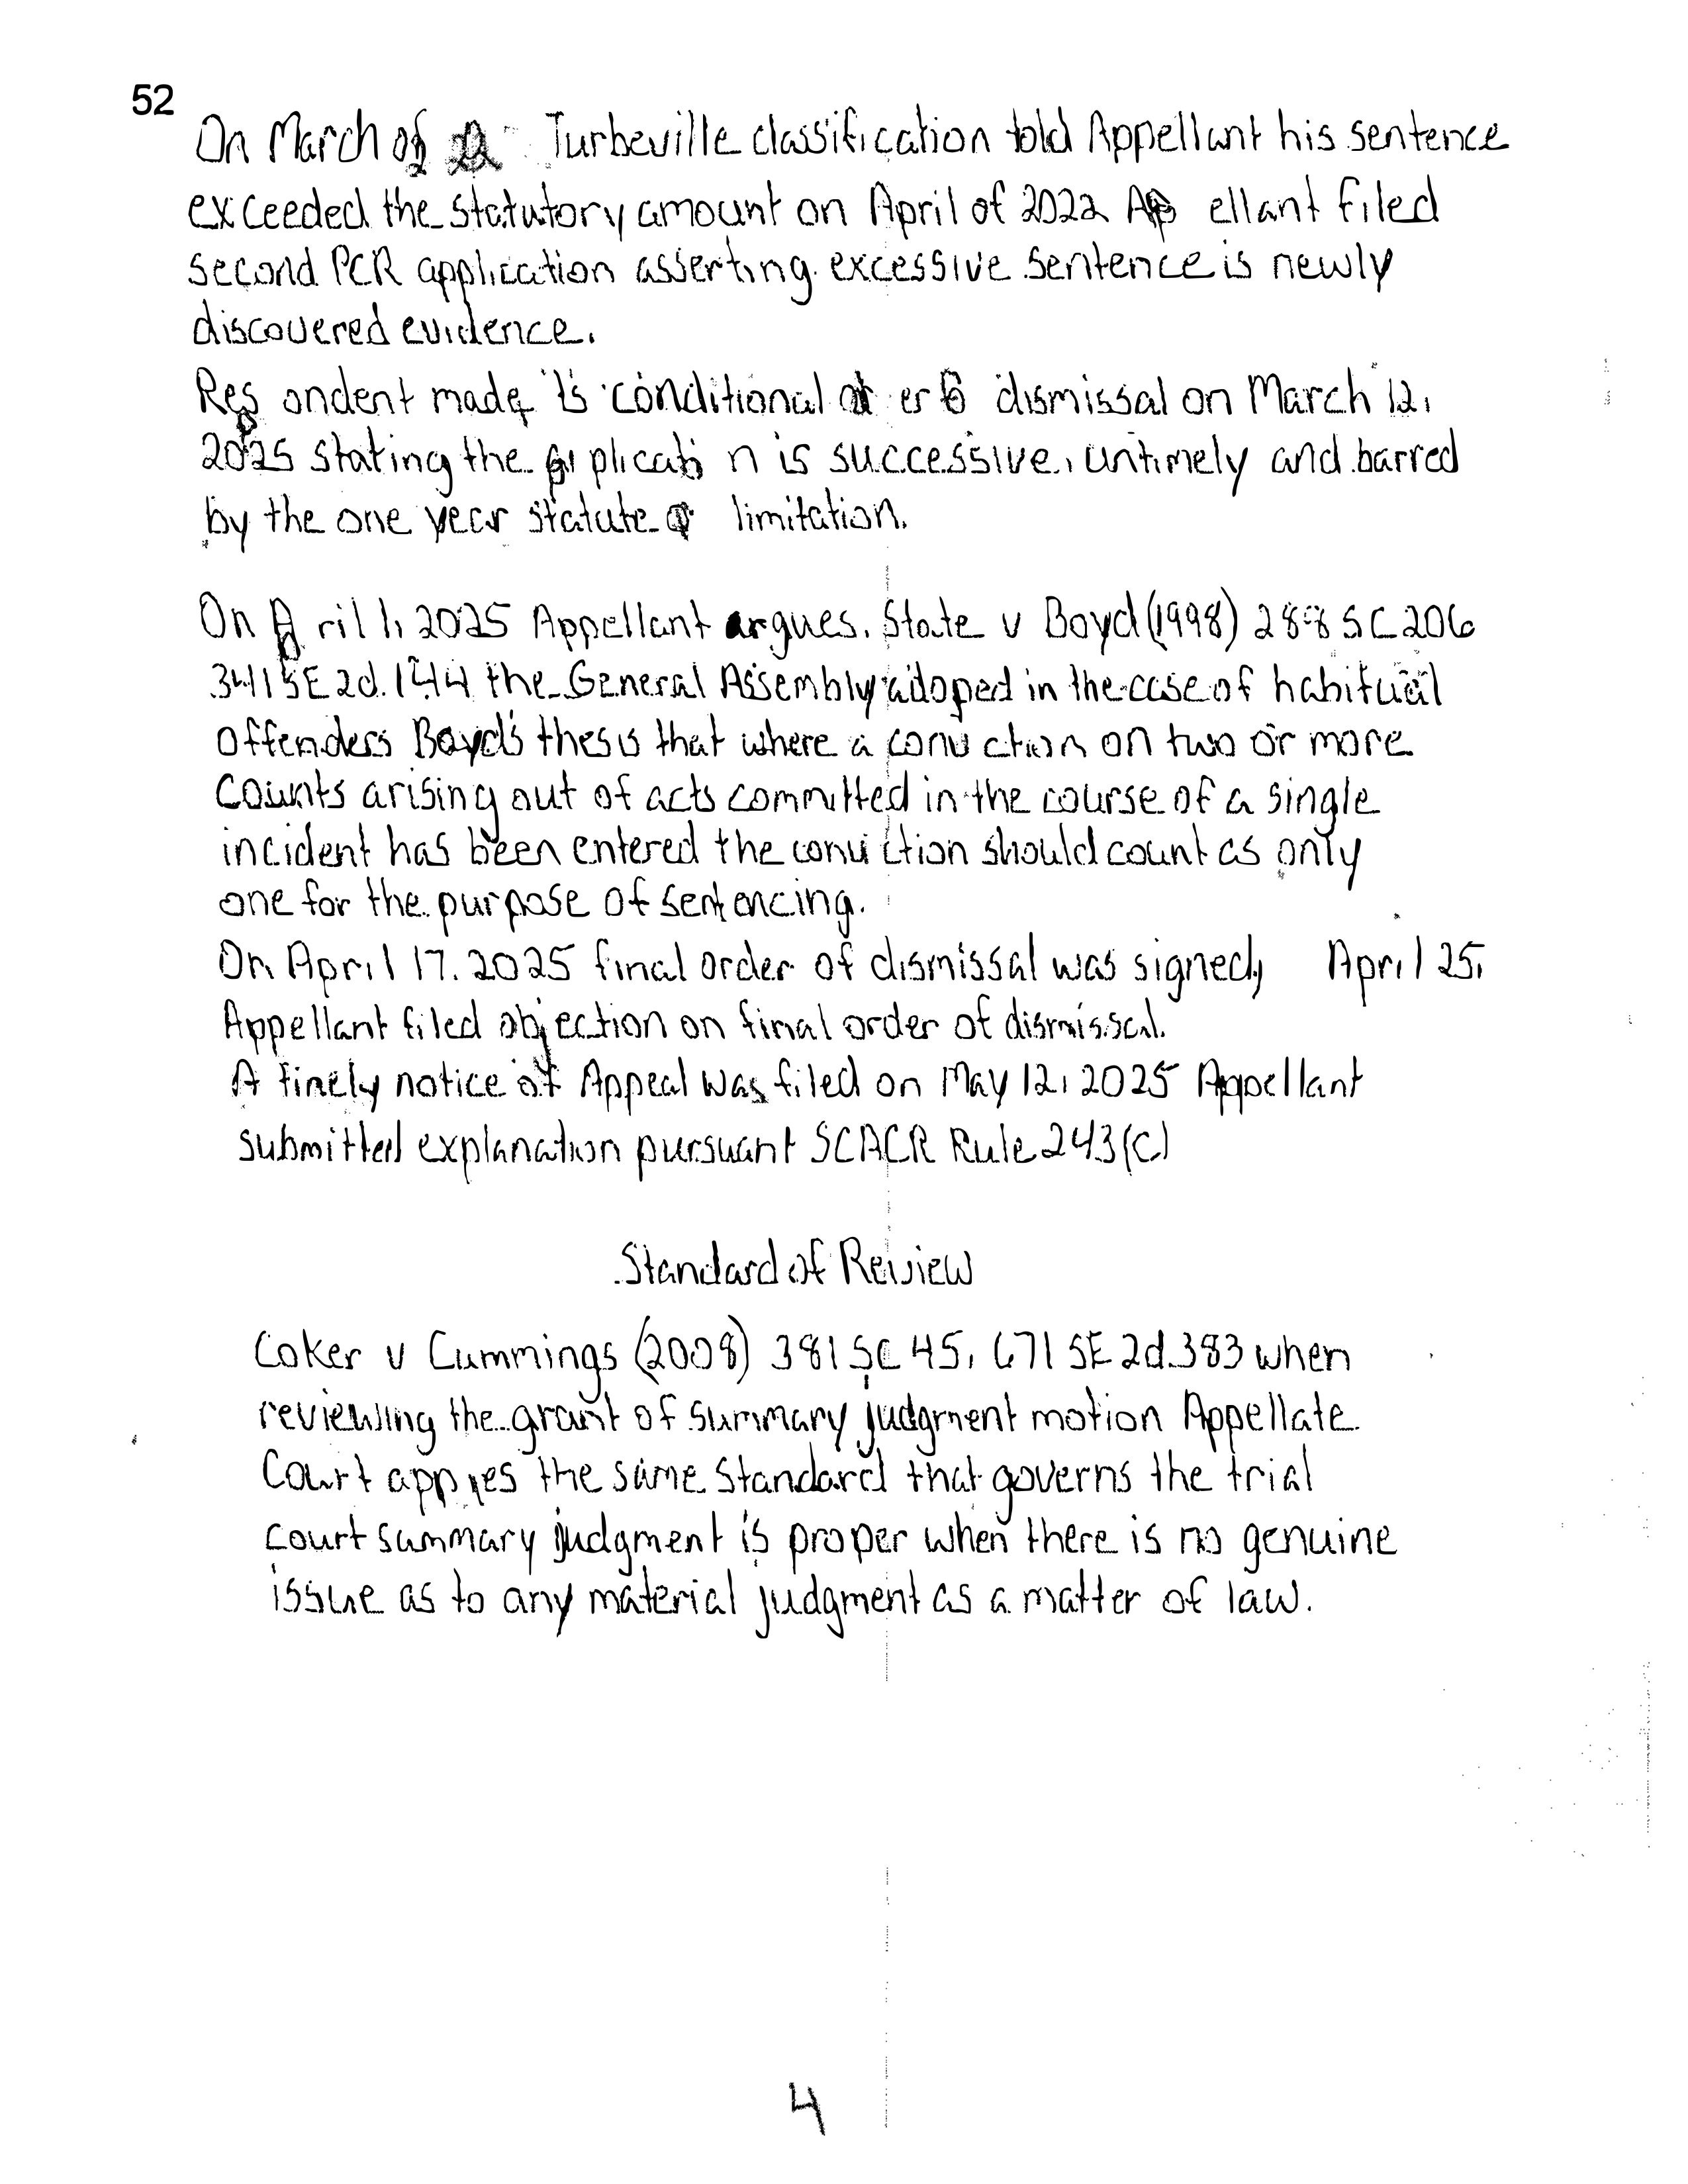 52
On March of Turbeville classification told Appellant his sentence
exceeded the statutory amount on April of 2022 Ap ellant filed
second PCR application asserting excessive sentence is newly
discovered evidence.
Res ondent made conditional dismissal on March 12,
2025 stating the n is successive, untimely and barred
by the one year statute limitation.
On ril 1, 2025 Appellant argues. State v Boyd (1998) 288 SC 206
341 SE 2d. 144 the General Assembly adoped in the case of habitual
offenders Boyd's thesis that where a conviction on two or more
counts arising out of acts committed in the course of a single
incident has been entered the conviction should count as only
one for the purpose of sentencing.
On April 17. 2025 final order of dismissal was signed, April 25,
Appellant filed objection on final order of dismissal.
A timely notice of Appeal was filed on May 12, 2025 Appellant
submitted explanation pursuant SCACR Rule 243(c)
Standard of Review
Coker v Cummings (2008) 381 SC 45, 671 SE 2d. 383 when
reviewing the grant of summary judgment motion Appellate
Court applies the same standard that governs the trial
court summary judgment is proper when there is no genuine
issue as to any material judgment as a matter of law.
4